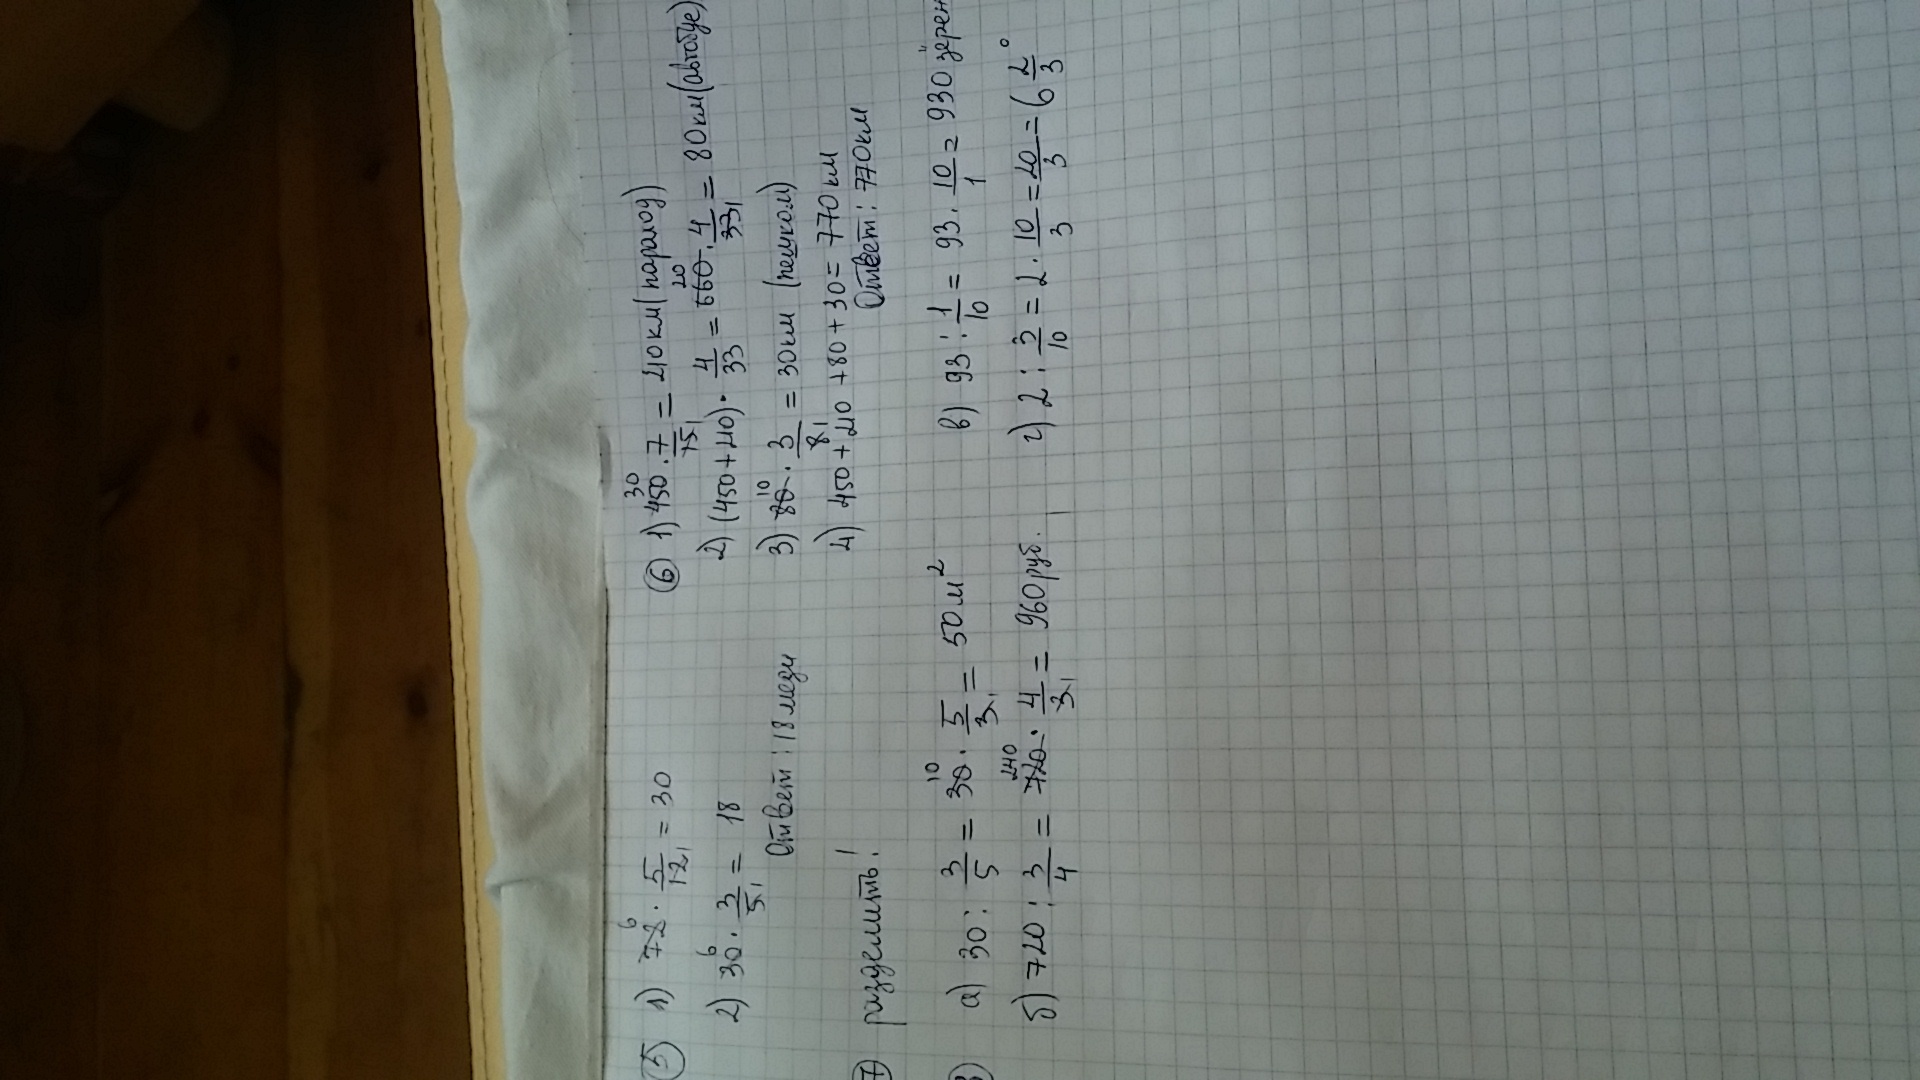 ⑤ 1) 72⁶ · 5/12₁ = 30
2) 30⁶ · 3/5₁ = 18
Ответ: 18 меди
⑥ 1) 450³⁰ · 7/15₁ = 210 км (пароход)
2) (450+210) · 4/33 = 660²⁰ · 4/33₁ = 80 км (автобус)
3) 80¹⁰ · 3/8₁ = 30 км (пешком)
4) 450+210+80+30 = 770 км
Ответ: 770 км
⑦ разделить!
а) 30 : 3/5 = 30¹⁰ · 5/3₁ = 50 м²
б) 720 : 3/4 = 720²⁴⁰ · 4/3₁ = 960 руб.
в) 93 : 1/10 = 93 · 10/1 = 930
г) 2 : 3/10 = 2 · 10/3 = 20/3 = 6 2/3 °